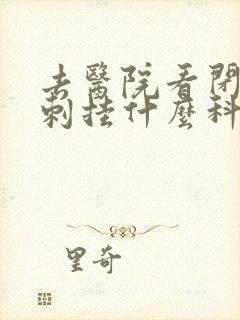 去醫院看閉
刺挂什麼科
里奇